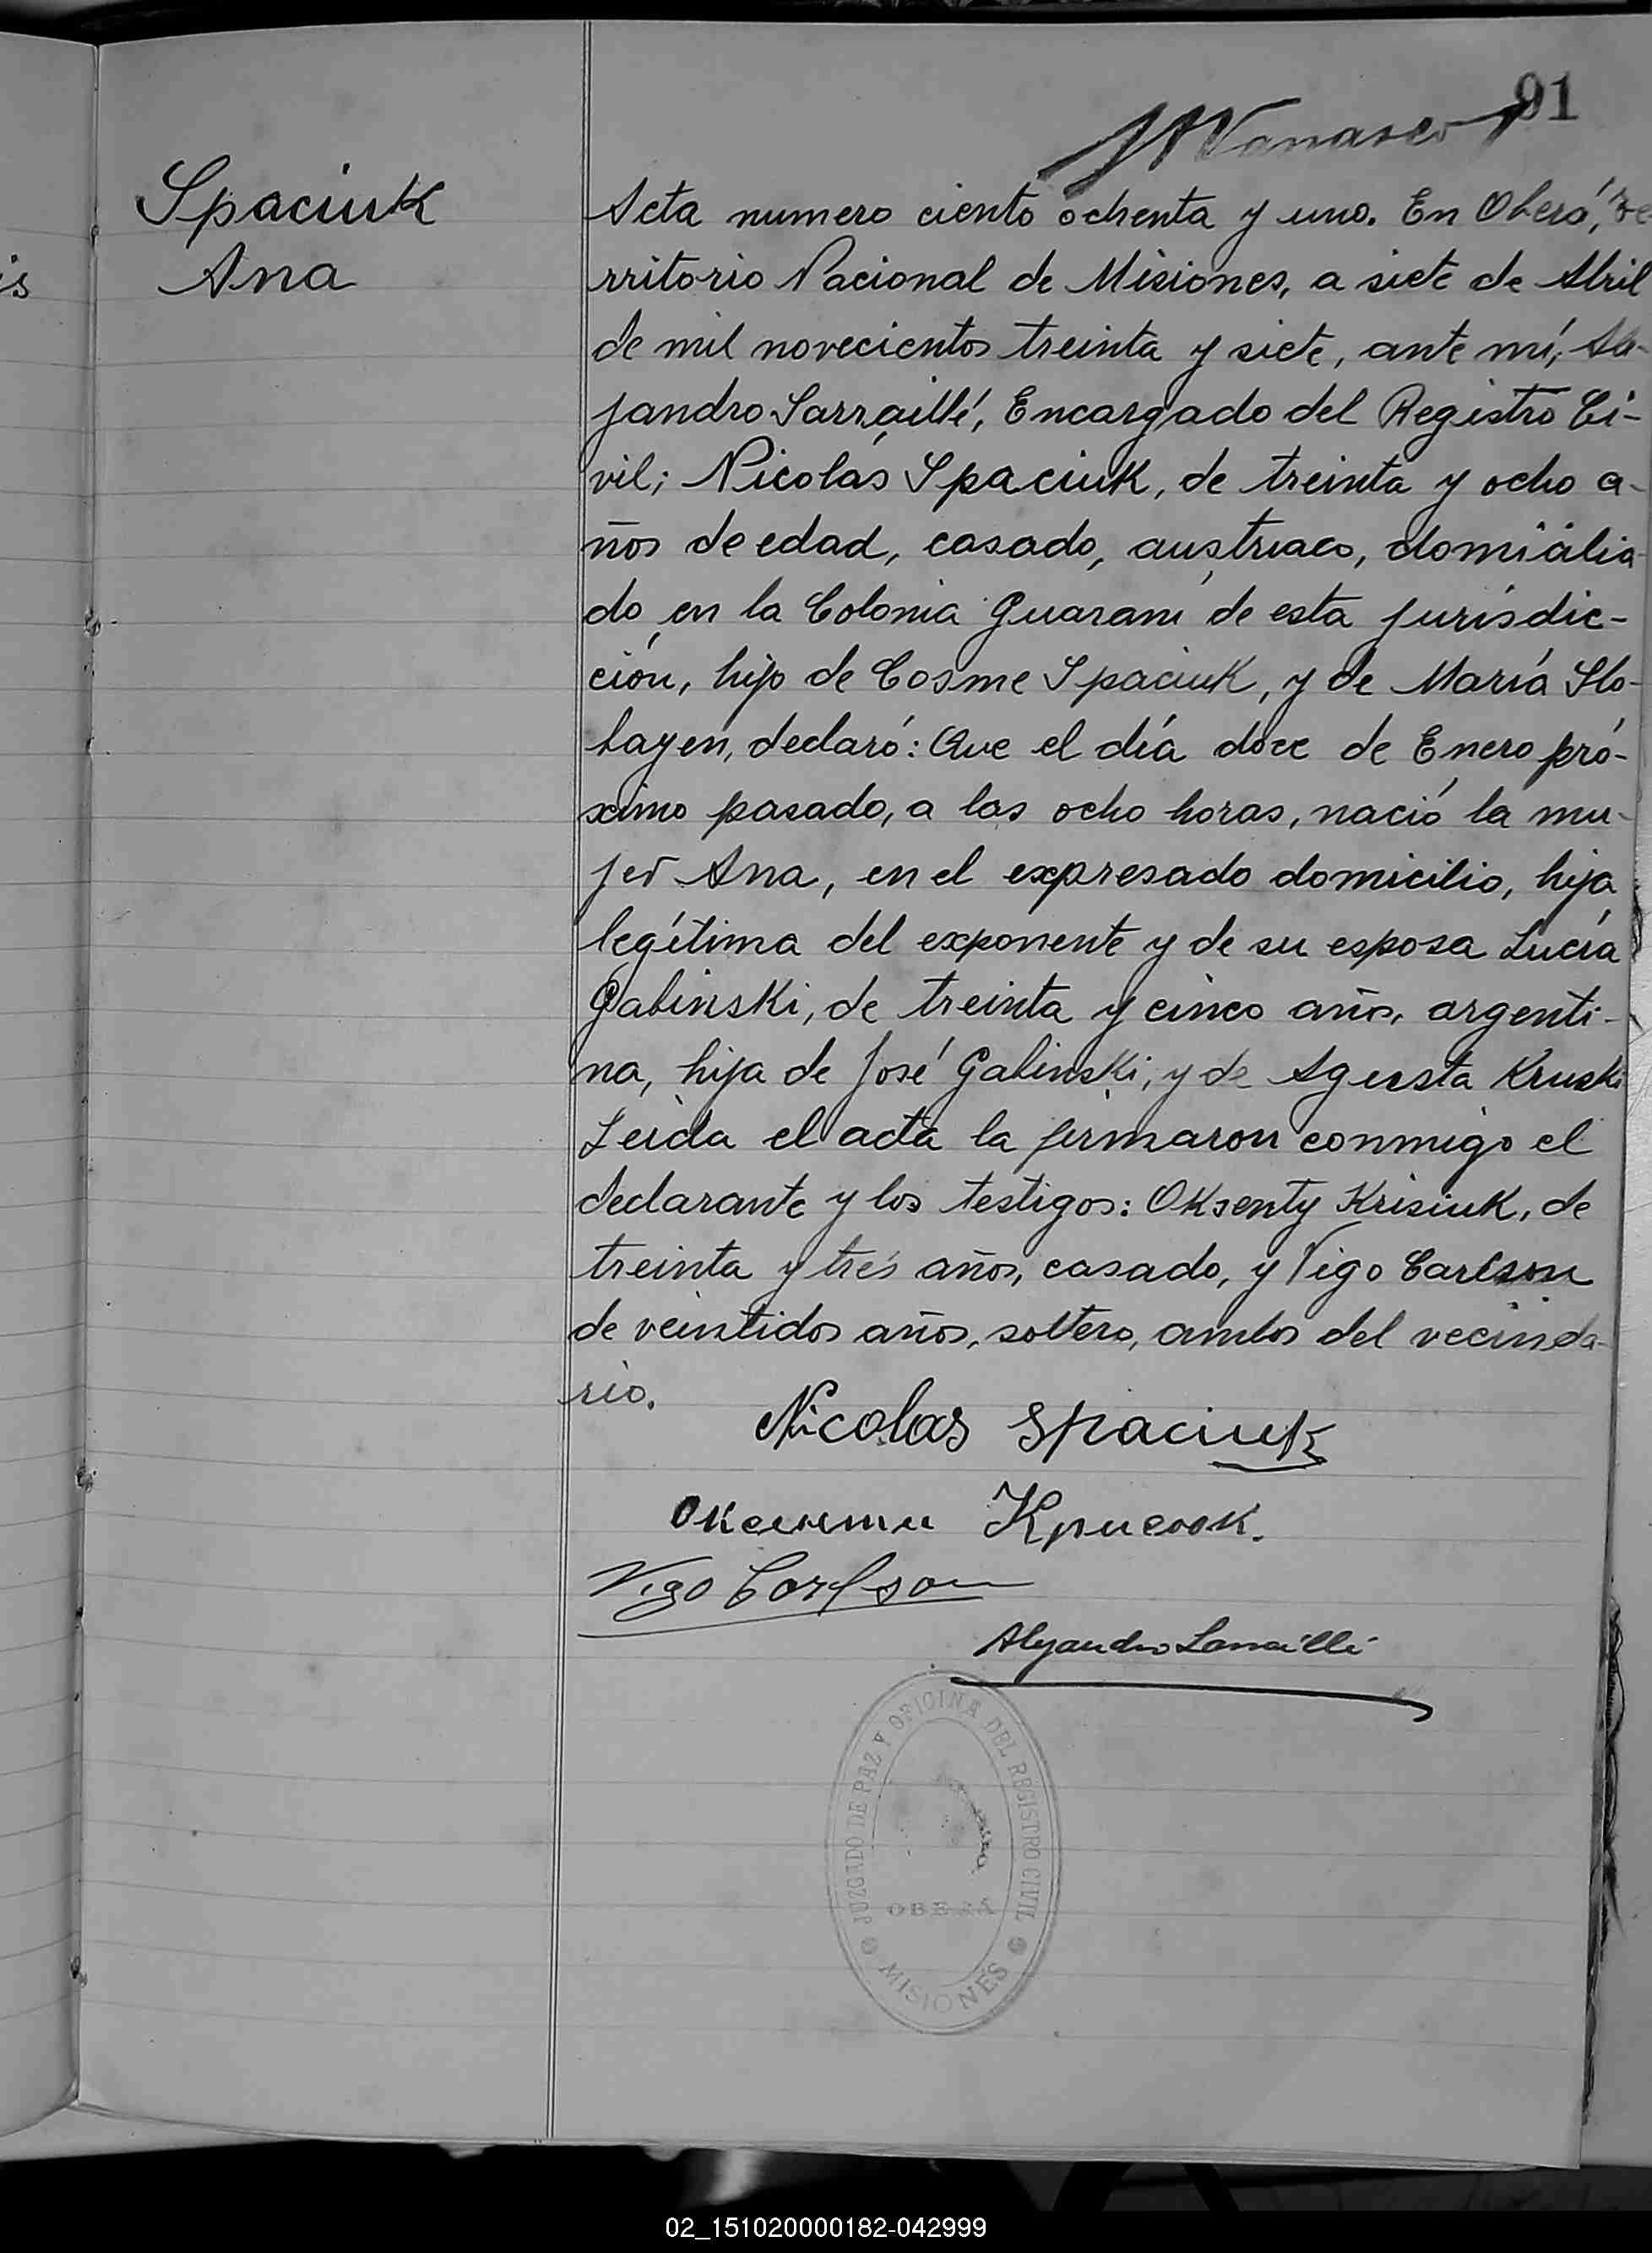 91
Spaciuk
Ana
Acta numero ciento ochenta y uno. En Oberá, Te
rritorio Nacional de Misiones, a siete de Abril
de mil novecientos treinta y siete, ante mí, Ale-
jandro Larraillé, Encargado del Registro Ci-
vil; Nicolás Spaciuk, de treinta y ocho a-
ños de edad, casado, austriaco, domicilia-
do en la Colonia Guaraní de esta jurisdic-
ción, hijo de Cosme Spaciuk, y de María Slo-
bayen, declaró: Que el día doce de Enero pró-
ximo pasado, a las ocho horas, nació la mu-
jer Ana, en el expresado domicilio, hija
legítima del exponente y de su esposa Lucía
Gabinski, de treinta y cinco años, argenti-
na, hija de José Gabinski, y de Agusta Kruski
Leída el acta la firmaron conmigo el
declarante y los testigos: Oksenty Krisiuk, de
treinta y trés años, casado, y Vigo Carlson
de veintidos años, soltero, ambos del vecinda-
rio.
Nicolas Spaciuk
Оксенти Крисюк.
Vigo Carlson
Alejandro Larraillé
JUZGADO DE PAZ Y OFICINA DEL REGISTRO CIVIL
OBERÁ
MISIONES
02_151020000182-042999